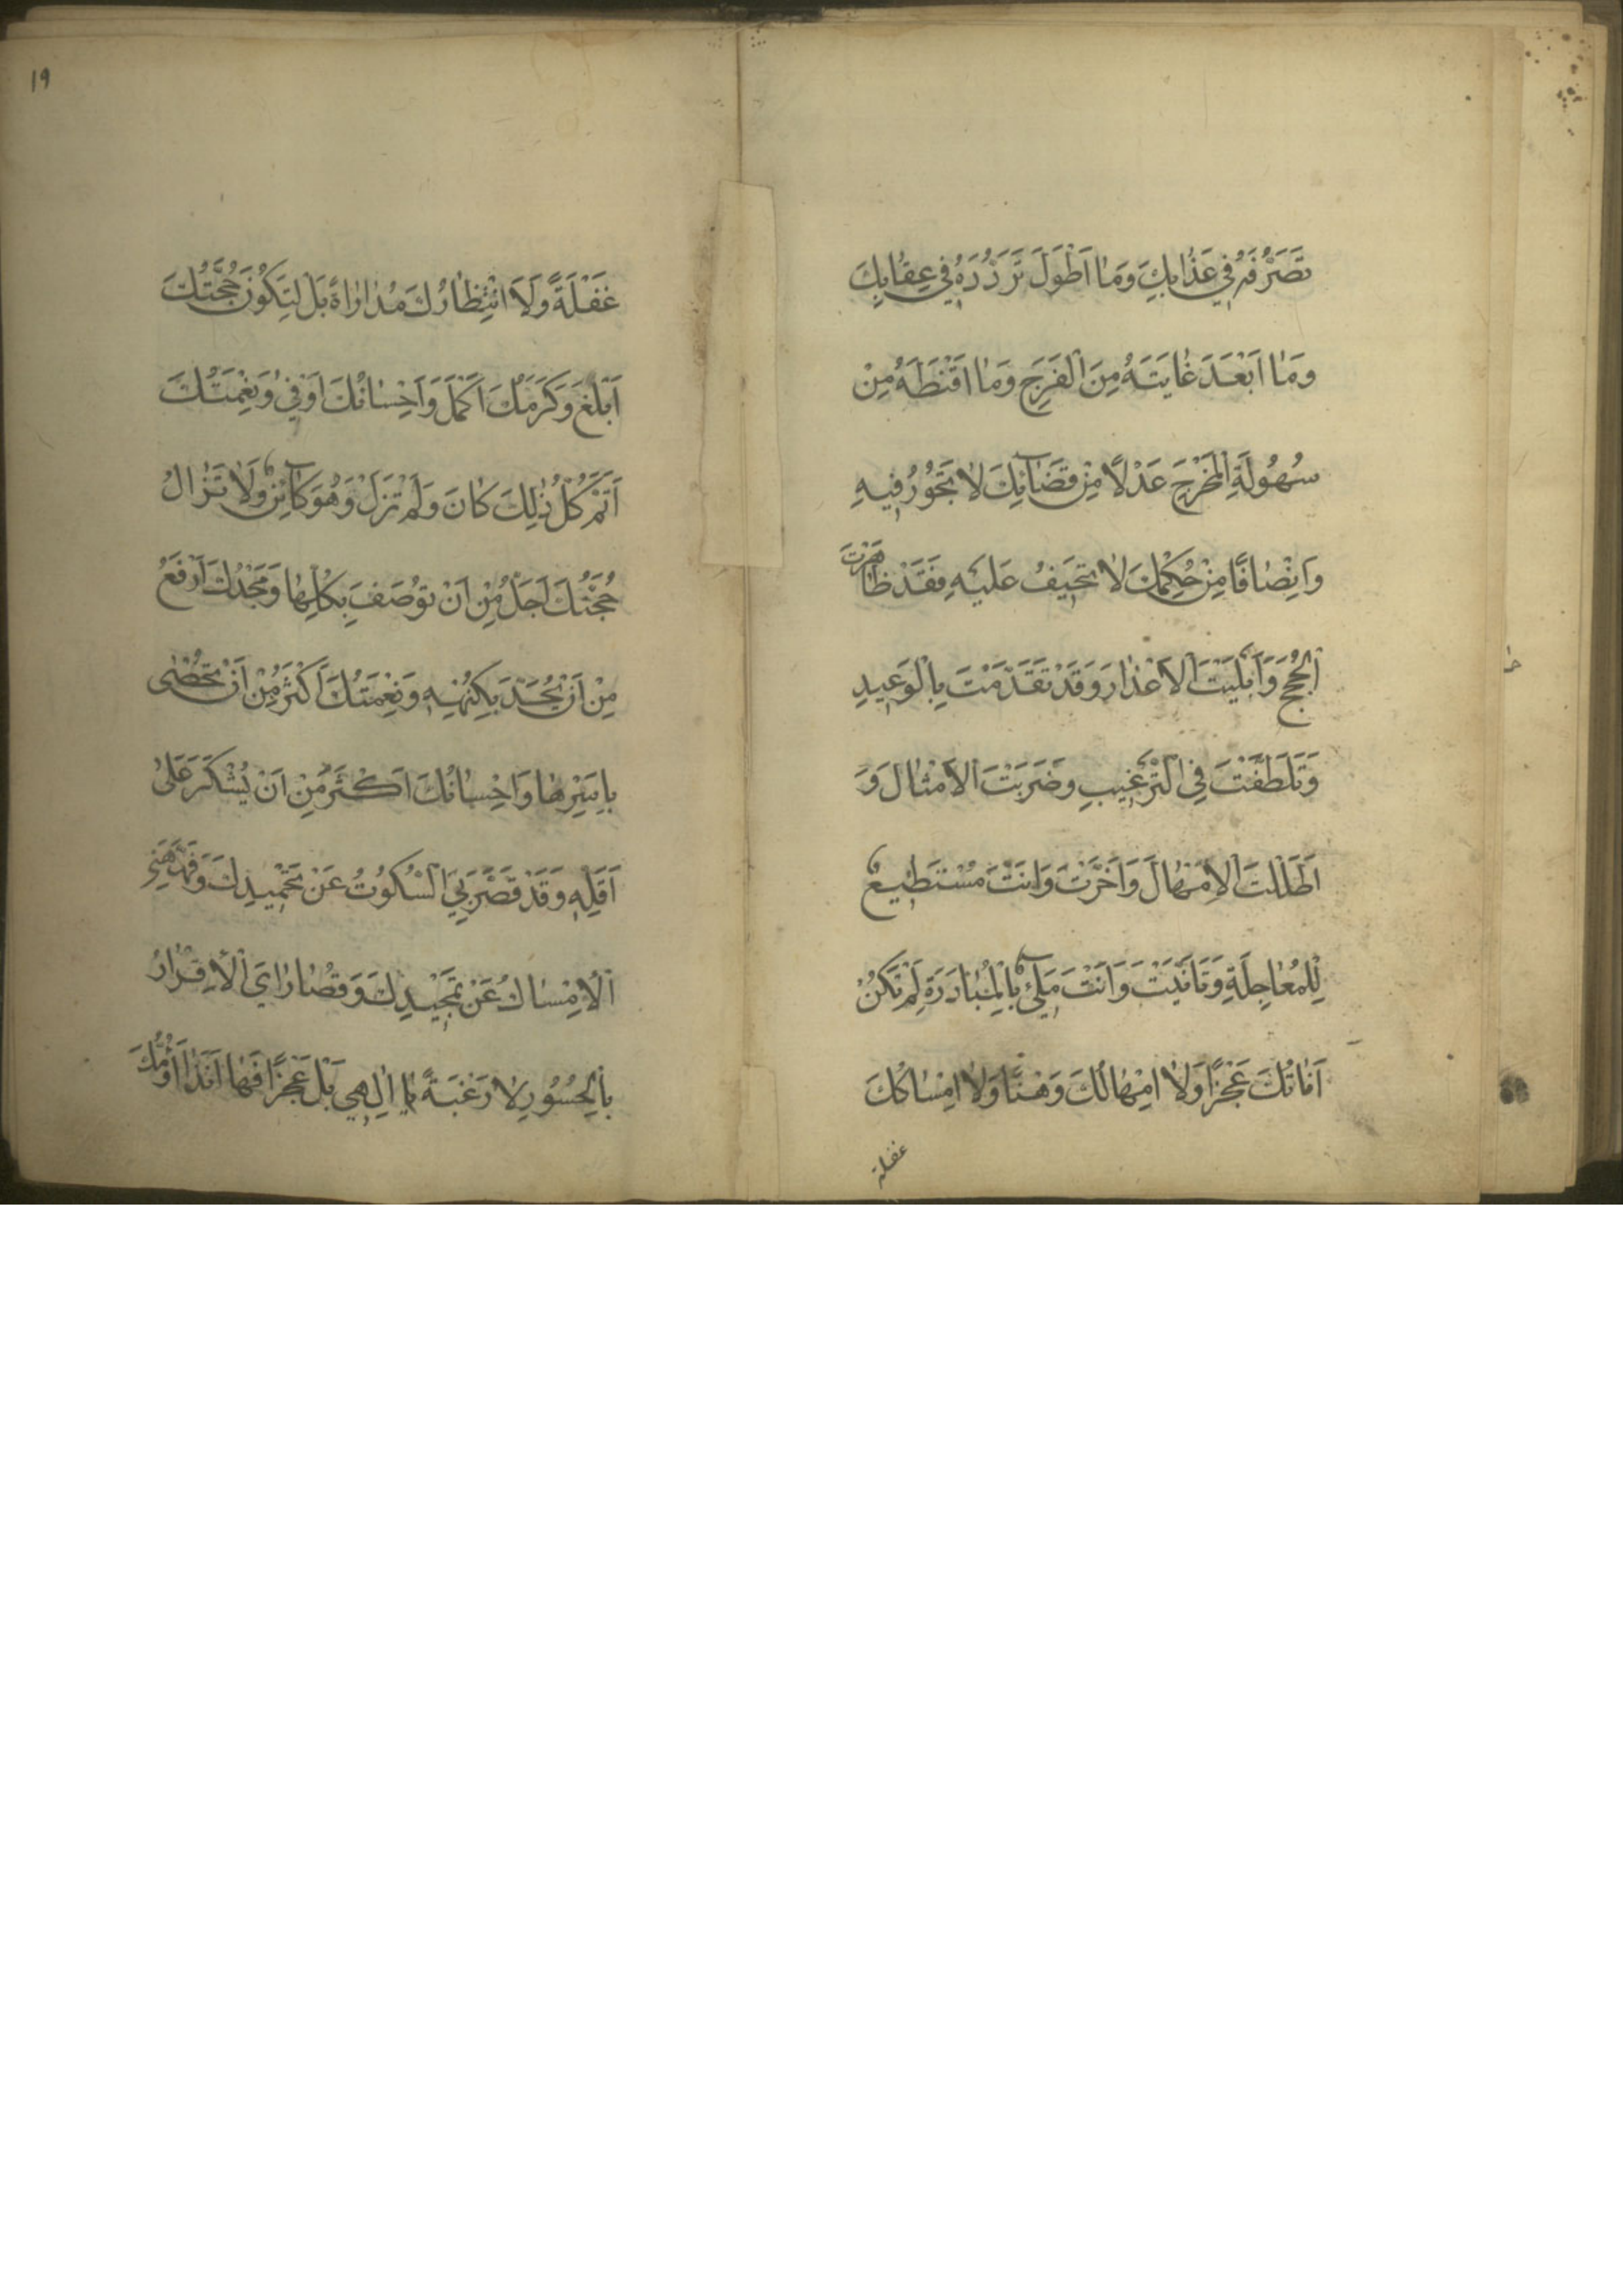 تَصَرُّفَهُ فِي عَذَابِكَ وَمَا اَطْوَلَ تَرَدُّدَهُ فِي عِقَابِكَ
وَمَا اَبْعَدَ غَايَتَهُ مِنَ الْفَرَجِ وَمَا اَقْنَطَهُ مِنْ
سُهُولَةِ الْمَخْرَجِ عَدْلًا مِنْ قَضَائِكَ لَا تَجُورُ فِيهِ
وَاِنْصَافًا مِنْ حُكْمِكَ لَا تَحِيفُ عَلَيْهِ فَقَدْ ظَاهَرْتَ
الْحُجَجَ وَاَبْلَيْتَ الْاَعْذَارَ وَقَدْ تَقَدَّمْتَ بِالْوَعِيدِ
وَتَلَطَّفْتَ فِي التَّرْغِيبِ وَضَرَبْتَ الْاَمْثَالَ وَ
اَطَلْتَ الْاِمْهَالَ وَاَخَّرْتَ وَاَنْتَ مُسْتَطِيعٌ
لِلْمُعَاجَلَةِ وَتَاَنَّيْتَ وَاَنْتَ مَلِيءٌ بِالْمُبَادَرَةِ لَمْ تَكُنْ
اَنَاتُكَ عَجْزًا وَلَا اِمْهَالُكَ وَهْنًا وَلَا اِمْسَاكُكَ
غفلة
١٩
غَفْلَةً وَلَا انْتِظَارُكَ مُدَارَاةً بَلْ لِتَكُونَ حُجَّتُكَ
اَبْلَغَ وَكَرَمُكَ اَكْمَلَ وَاِحْسَانُكَ اَوْفَى وَنِعْمَتُكَ
اَتَمَّ كُلُّ ذٰلِكَ كَانَ وَلَمْ تَزَلْ وَهُوَ كَائِنٌ وَلَا تَزَالُ
حُجَّتُكَ اَجَلُّ مِنْ اَنْ تُوصَفَ بِكُلِّهَا وَمَجْدُكَ اَرْفَعُ
مِنْ اَنْ يُحَدَّ بِكُنْهِهِ وَنِعْمَتُكَ اَكْثَرُ مِنْ اَنْ تُحْصٰى
بِاَسْرِهَا وَاِحْسَانُكَ اَكْثَرُ مِنْ اَنْ يُشْكَرَ عَلٰى
اَقَلِّهِ وَقَدْ قَصَّرَ بِيَ السُّكُوتُ عَنْ تَحْمِيدِكَ وَفَهَّهَنِيَ
الْاِمْسَاكُ عَنْ تَمْجِيدِكَ وَقُصَارَايَ الْاِقْرَارُ
بِالْحُسُورِ لَا رَغْبَةً يَا اِلٰهِي بَلْ عَجْزًا فَهَا اَنَا ذَا اَؤُمُّكَ